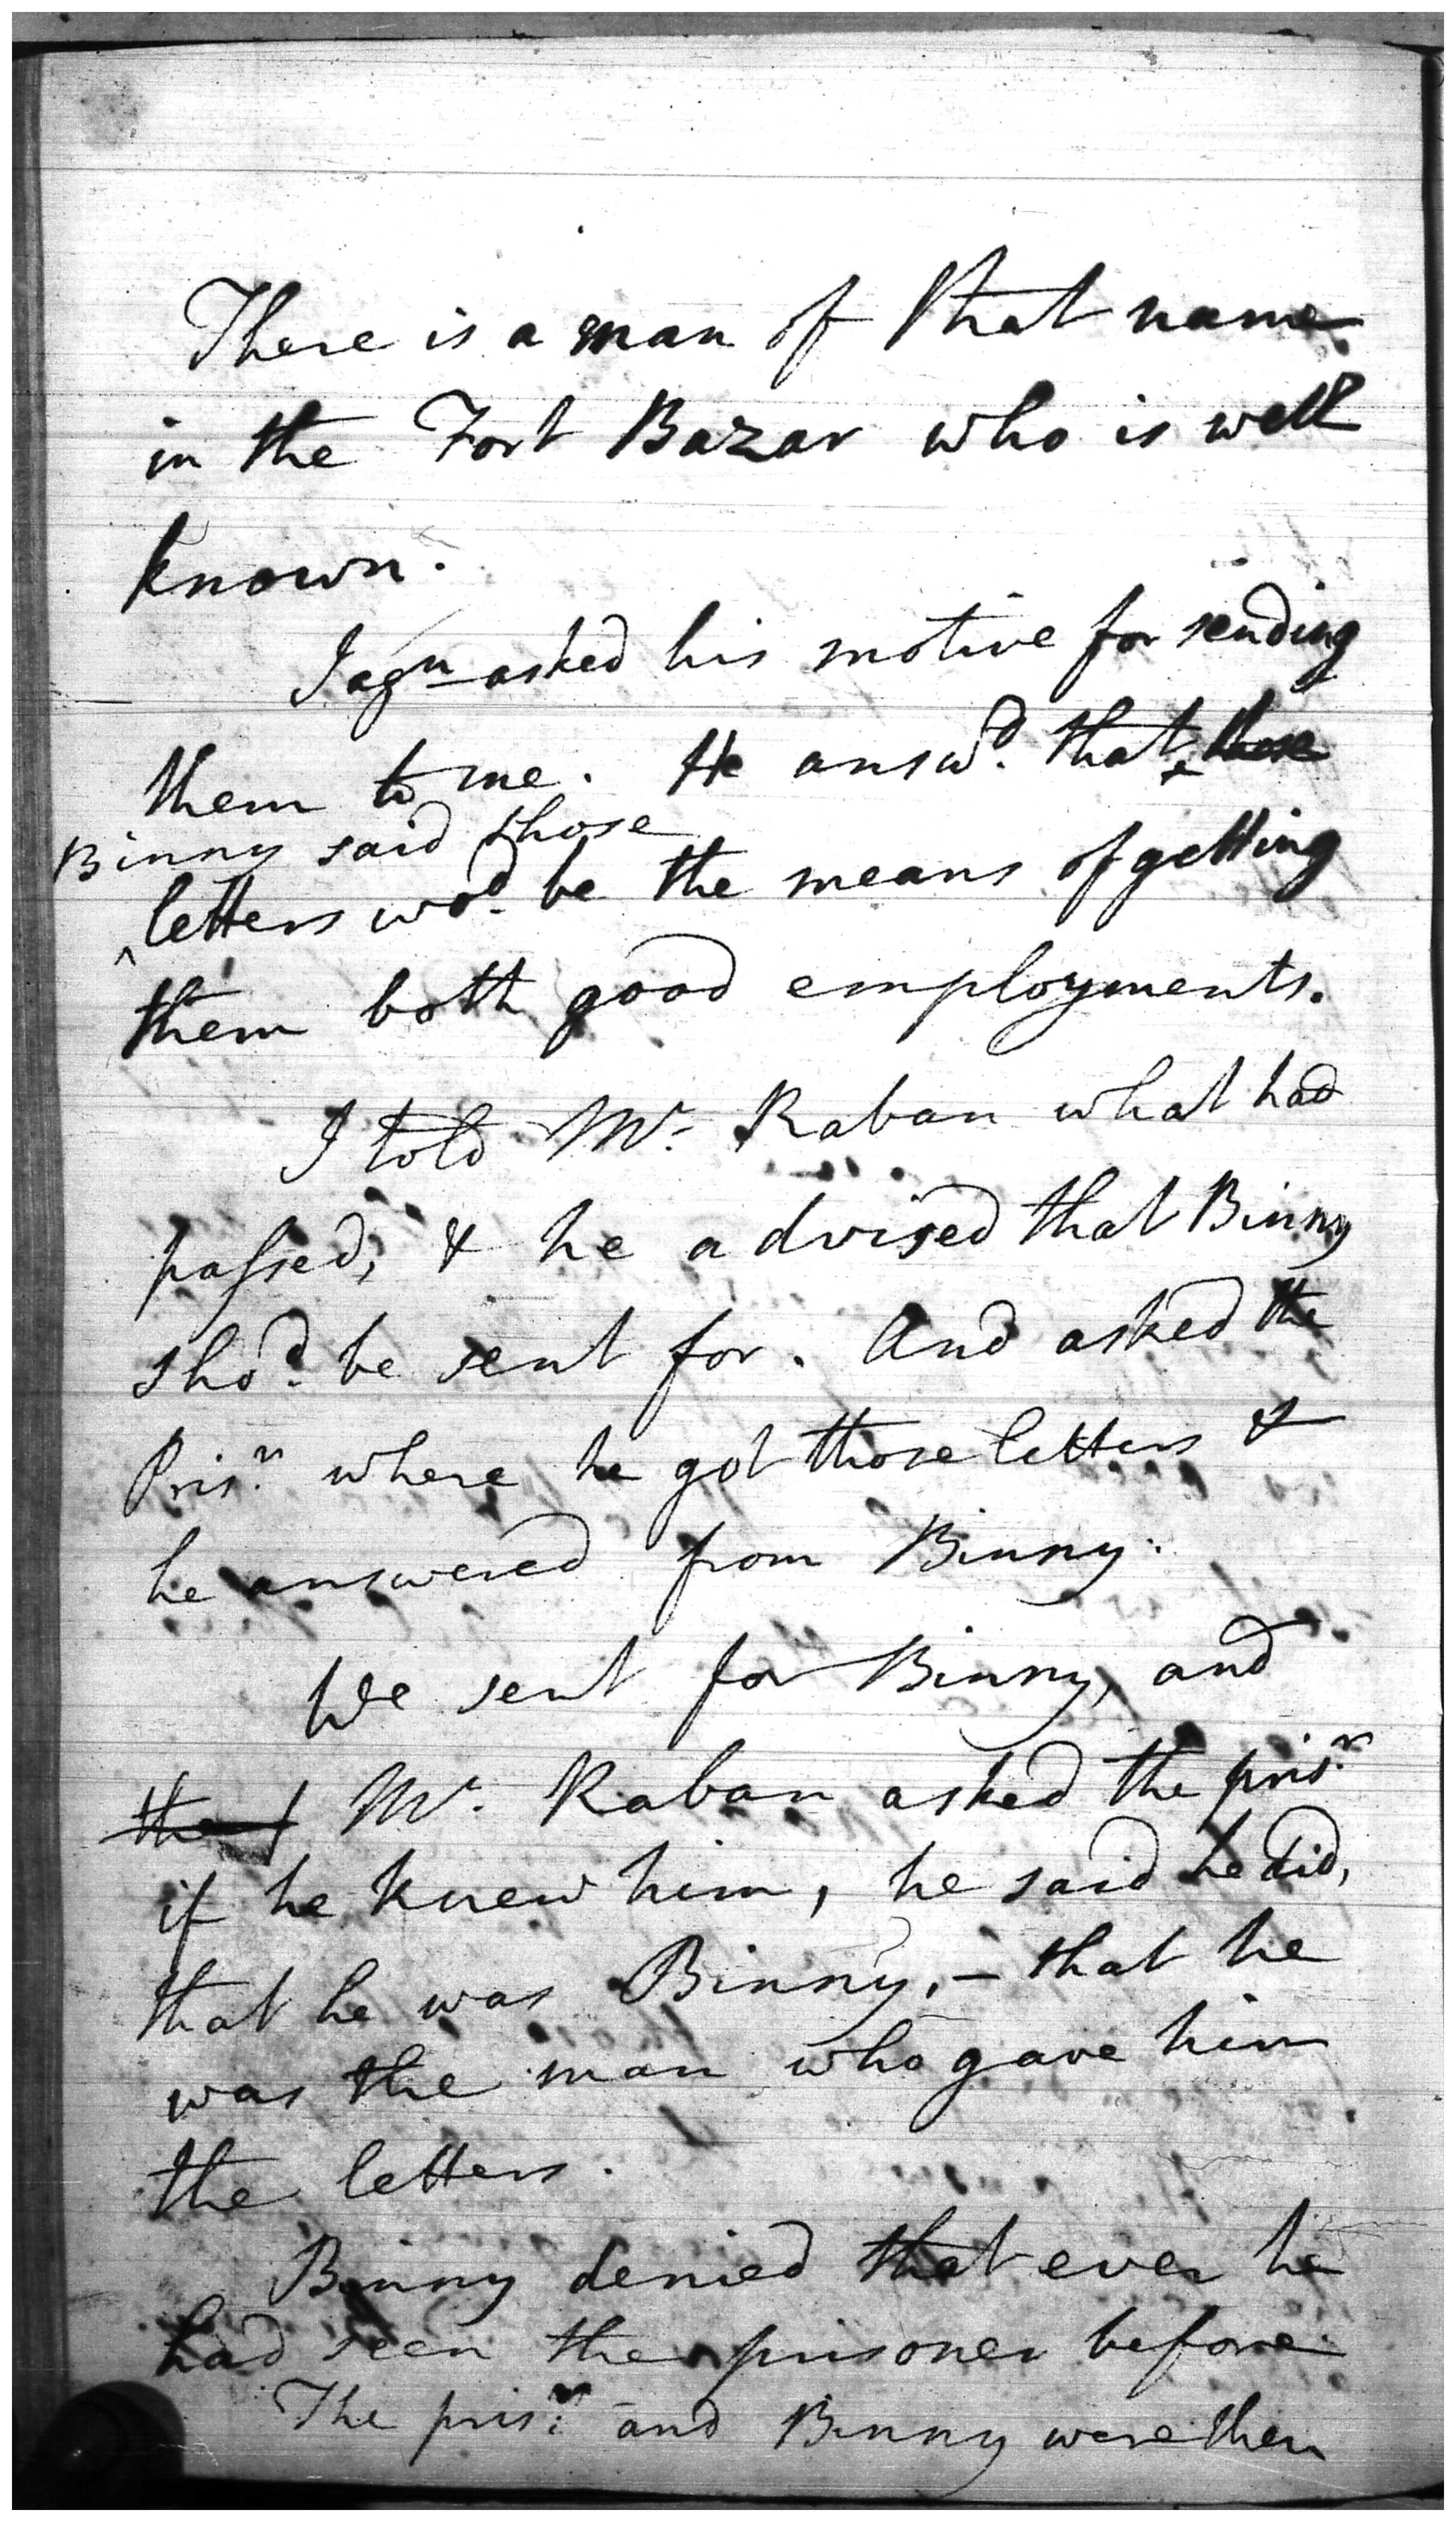 There is a man of that name
in the Fort Bazar who is well
known.
I agn asked his motive for sending
them to me. He answd. that those
Binny said those
letters wod. be the means of getting
them both good employments.
I told Mr. Raban what had
passed; & he advised that Binny
shod. be sent for. And asked the
Prisr. where he got those letters &
he answered from Binny.
We sent for Binny, and
the Mr. Raban asked the prisr.
if he knew him, he said he did,
that he was Binny, - that he
was the man who gave him
the letters.
Binny denied that ever he
had seen the prisoner before.
The prisr. and Binny were then